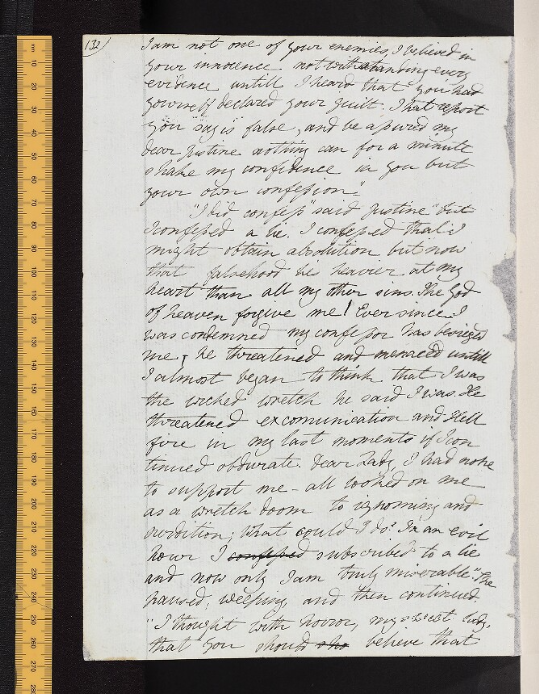 132)
I am not one of your enemies, I believed in
your innocence notwithstanding every
evidence untill I heard that you had
yourself declared your guilt. That report
you say is false, and be assured my
dear Justine nothing can for a minute
shake my confidence in you but
your own confession."
"I did confess" said Justine "but
I confessed a lie. I confessed that I
might obtain absolution but now
that falsehood lies heavier at my
heart than all my other sins. The God
of heaven forgive me! Ever since I
was condemned my confessor has besieged
me; he threatened and menaced untill
I almost began to think that I was
the wicked wretch he said I was. He
threatened excomunication and Hell
fire in my last moments if I con
tinued obdurate. Dear Lady, I had none
to support me – all looked on me
as a wretch doom to ignominy and
perdition; What could I do? In an evil
hour I confessed subscribed to a lie
and now only I am truly miserable." She
paused, weeping, and then continued
"I thought with horror, my sweet lady,
that you should she believe that